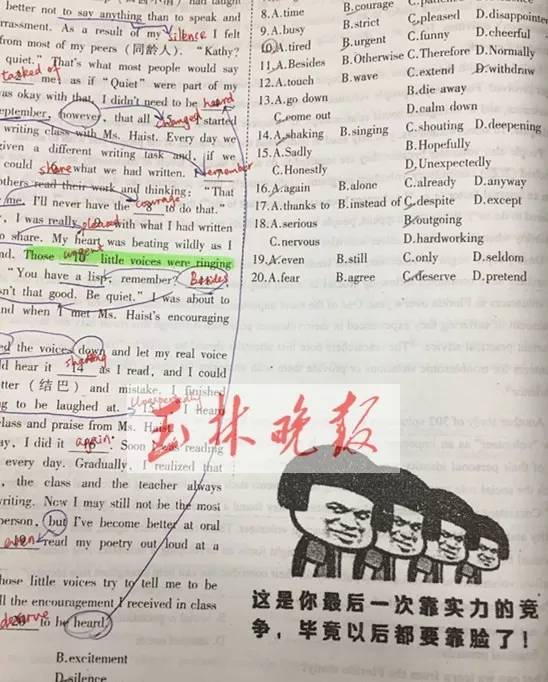 better not to say anything than to speak and
rrassment. As a result of my silence I felt
from most of my peers (同龄人). "Kathy?
quiet." That's what most people would say
asked of me, as if "Quiet" were part of my
was okay with that. I didn't need to be heard
eptember, however, that all changed started
writing class with Ms. Haist. Every day we
given a different writing task and, if we
could share what we had written. I remember
others read their work and thinking: "That
me. I'll never have the courage 8 to do that."
, I was really pleased with what I had written
o share. My heart was beating wildly as I
nd. Those urgent 10 little voices were ringing
"You have a lisp, remember? Besides
sn't that good. Be quiet." I was about to
nd when I met Ms. Haist's encouraging
ed the voices down and let my real voice
d hear it shaking 14 as I read, and I could
tter (结巴) and mistake. I finished
ng to be laughed at. Unexpectedly 15 I heard
class and praise from Ms. Haist
ay, I did it again 16. Soon I was reading
every day. Gradually, I realized that
, the class and the teacher always
writing. Now I may still not be the most
person, but I've become better at oral
even 19 read my poetry out loud at a
hose little voices try to tell me to be
ll the encouragement I received in class
deserve 20 to be heard.
B.excitement
D.silence
8.A.time B.courage C.patience
9.A.busy B.strict C.pleased D.disappointe
10.A.tired B.urgent C.funny D.cheerful
11.A.Besides B.Otherwise C.Therefore D.Normally
12.A.touch B.wave C.extend D.withdraw
13.A.go down B.die away
C.come out D.calm down
14.A.shaking B.singing C.shouting D.deepening
15.A.Sadly B.Hopefully
C.Honestly D.Unexpectedly
16.A.again B.alone C.already D.anyway
17.A.thanks to B.instead of C.despite D.except
18.A.serious B.outgoing
C.nervous D.hardworking
19.A.even B.still C.only D.seldom
20.A.fear B.agree C.deserve D.pretend
玉林晚报
这是你最后一次靠实力的竞
争，毕竟以后都要靠脸了！